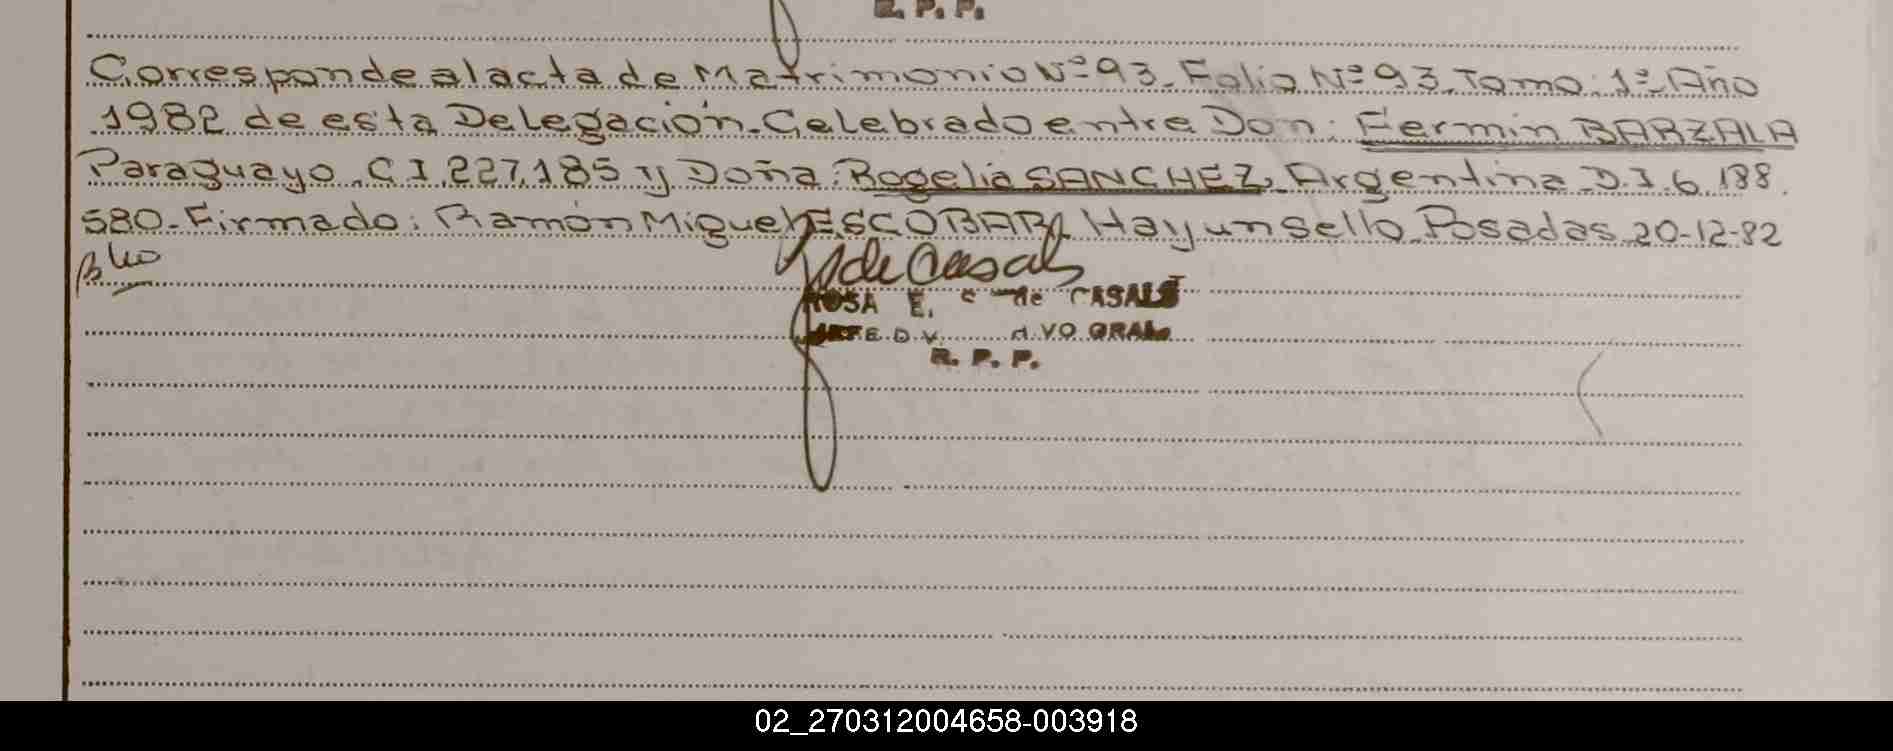 R. P. P.
Corresponde al acta de Matrimonio Nº 93. Folio Nº 93. Tomo: 1º. Año
1982 de esta Delegación. Celebrado entre Don: Fermin BARZALA
Paraguayo. C I. 227.185 y Doña: Rogelia SANCHEZ, Argentina. D. I. 6.188.
580. Firmado: Ramón Miguel ESCOBAR. Hay un Sello. Posadas. 20-12-82
de Casals
ROSA E. de CASALS
R. P. P.
02_270312004658-003918